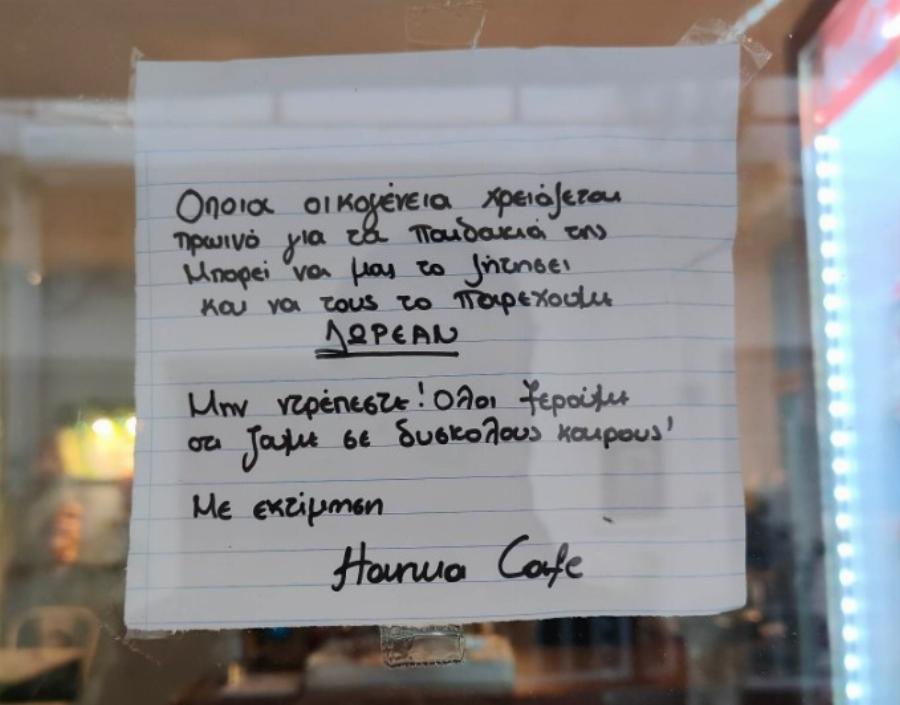 Οποια οικογένεια χρειάζεται
πρωινό για τα παιδακιά της
Μπορεί να μας το ζητησει
και να τους το παρεχουμε
ΔΩΡΕΑΝ
Μην ντρέπεστε! Ολοι ξερούμε
οτι ζαμε σε δυσκολους καιρους'
Με εκτίμηση
Cafe